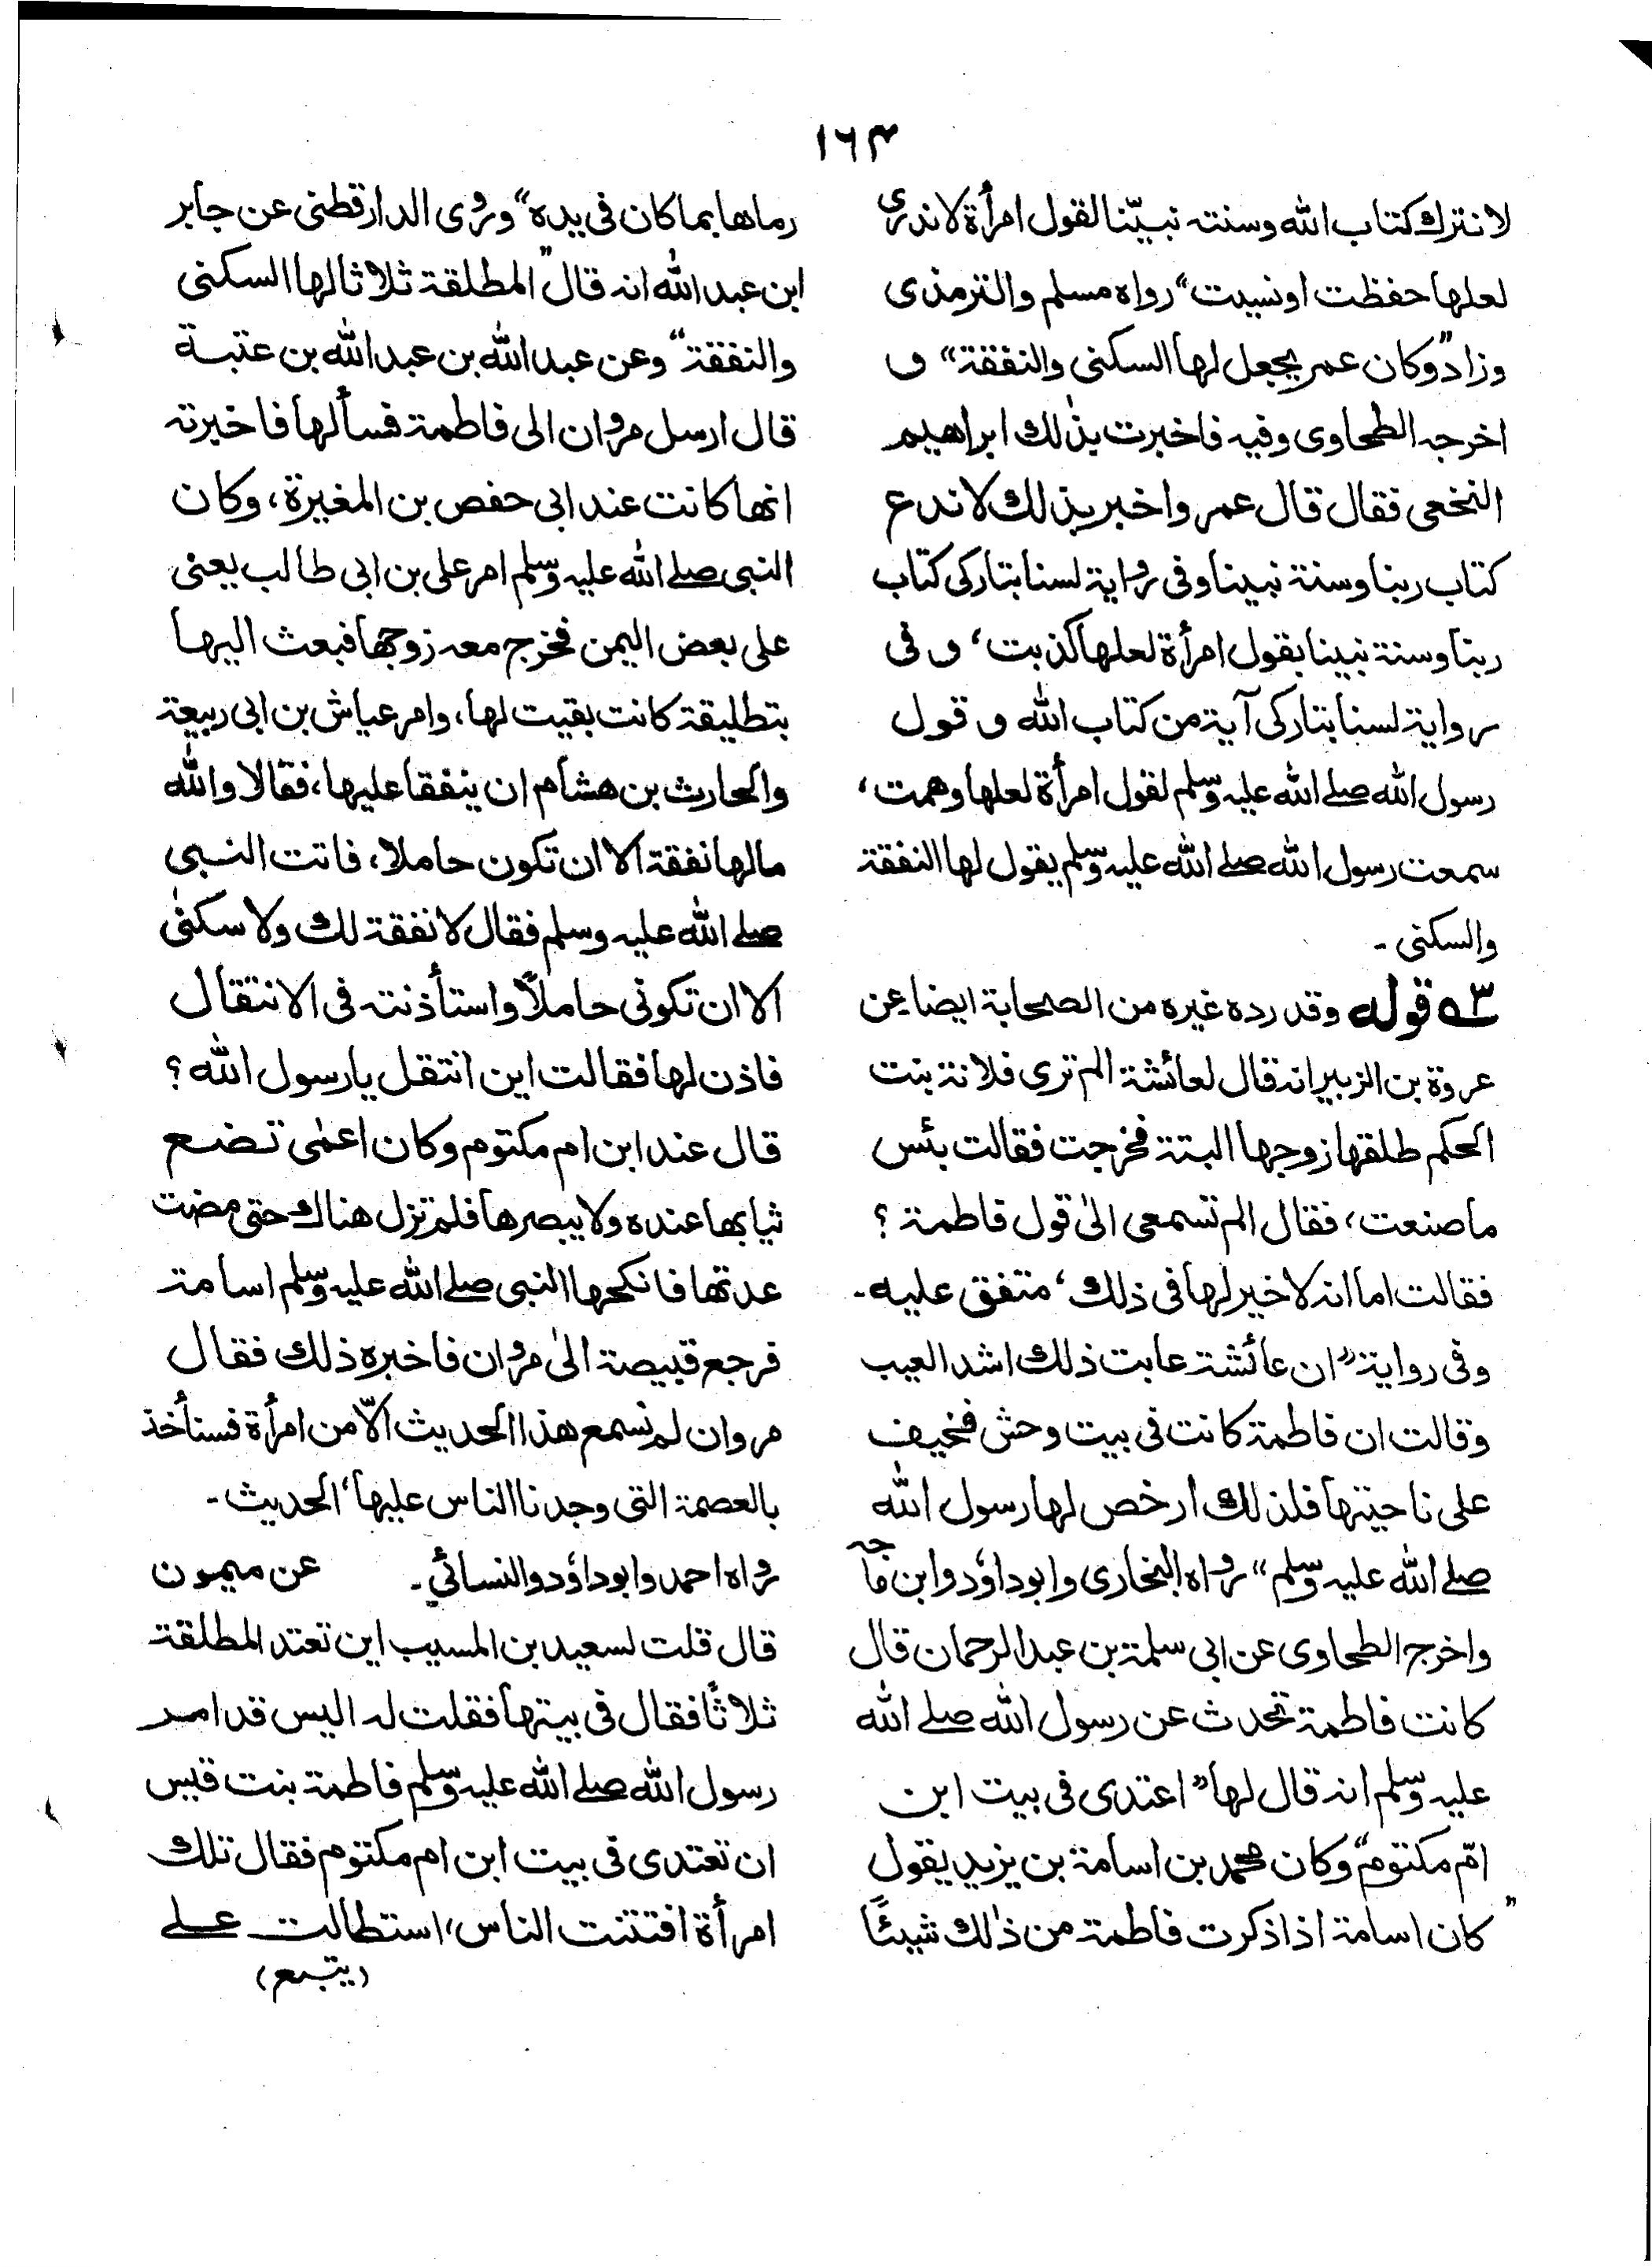 ۱۶۴
لا نترك كتاب الله وسنته نبيّنا لقول امرأة لا ندرى
لعلها حفظت او نسيت“ رواه مسلم والترمذى
وزاد”وكان عمر يجعل لها السكنى والنفقة“ و
اخرجه الطحاوى وفيه فاخبرت بذلك ابراهيم
النخعى فقال قال عمر واخبر بذلك لا ندع
كتاب ربنا وسنة نبينا وفى رواية لسنا بتاركى كتاب
ربنا وسنة نبينا بقول امرأة لعلها كذبت، و فى
رواية لسنا بتاركى آية من كتاب الله و قول
رسول الله صلے الله عليه وسلم لقول امرأة لعلها وهمت،
سمعت رسول الله صلے الله عليه وسلم يقول لها النفقة
والسكنى ـ
۵۳ قوله وقد رده غيره من الصحابة ايضا عن
عروة بن الزبير انه قال لعائشة الم ترى فلانة بنت
الحكم طلقها زوجها البتة فخرجت فقالت بئس
ما صنعت، فقال الم تسمعى الىٰ قول فاطمة ؟
فقالت اما انه لا خير لها فى ذلك، متفق عليه ـ
وفى رواية ”ان عائشة عابت ذلك اشد العيب
وقالت ان فاطمة كانت فى بيت وحش فخيف
على ناحيتها فلذلك ارخص لها رسول الله
صلے الله عليه وسلم“ رواه البخارى وابوداؤد وابن ماجه
واخرج الطحاوى عن ابى سلمة بن عبدالرحمان قال
كانت فاطمة تحدث عن رسول الله صلے الله
عليه وسلم انه قال لها ”اعتدى فى بيت ابن
امّ مكتوم“ وكان محمد بن اسامة بن يزيد يقول
”كان اسامة اذا ذكرت فاطمة من ذٰلك شيئًا
رماها بما كان فى يده“ وروى الدارقطنى عن جابر
ابن عبد الله انه قال ”المطلقة ثلاثا لها السكنى
والنفقة“ وعن عبد الله بن عبد الله بن عتبة
قال ارسل مروان الى فاطمة فسألها فاخبرته
انها كانت عند ابى حفص بن المغيرة، وكان
النبى صلے الله عليه وسلم امر على بن ابى طالب يعنى
على بعض اليمن فخرج معه زوجها فبعث اليها
بتطليقة كانت بقيت لها، وامر عياش بن ابى ربيعة
والحارث بن هشام ان ينفقا عليها، فقالا والله
مالها نفقة الا ان تكون حاملا، فاتت النبى
صلے الله عليه وسلم فقال لا نفقة لك ولا سكنىٰ
الا ان تكونى حاملاً واستأذنته فى الانتقال
فاذن لها فقالت اين انتقل يا رسول الله ؟
قال عند ابن ام مكتوم وكان اعمٰى تضع
ثيابها عنده ولا يبصرها فلم تزل هناك حتى مضت
عدتها فانكحها النبى صلے الله عليه وسلم اسامة
فرجع قبيصة الىٰ مروان فاخبره ذلك فقال
مروان لم نسمع هذا الحديث الّا من امرأة فسنأخذ
بالعصمة التى وجدنا الناس عليها، الحديث ـ
رواه احمد وابوداؤد والنسائي ـ عن ميمون
قال قلت لسعيد بن المسيب اين تعتد المطلقة
ثلاثًا فقال فى بيتها فقلت له اليس قد امر
رسول الله صلے الله عليه وسلم فاطمة بنت قيس
ان تعتدى فى بيت ابن ام مكتوم فقال تلك
امرأة افتتنت الناس، استطالت علے
(يتبع)